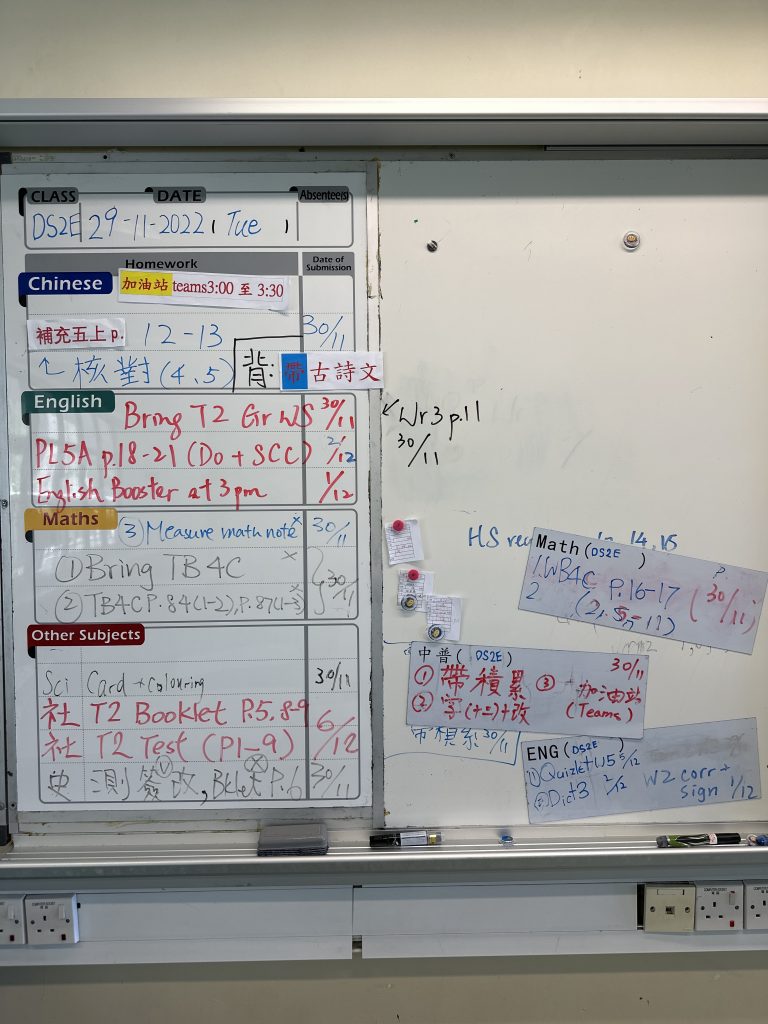 CLASS DATE Absentee(s)
DS2E 29-11-2022, Tue
Homework Date of Submission
Chinese 加油站 teams3:00 至 3:30
補充五上 p. 12-13 30/11
核對(4、5) 背: 帶古詩文
English Bring T2 Gr WS 30/11
PL5A p.18-21 (Do + SCC) 2/12
English Booster at 3pm 1/12
Maths ③ Measure math note 30/11
① Bring TB4C
② TB4C P.84(1-2), P.87(1-3) 30/11
Other Subjects
Sci Card + Colouring 30/11
社 T2 Booklet P.5, 8-9
社 T2 Test (P1-9) 6/12
史 測簽改, Bklet P.6 30/11
Wr3 p.11
30/11
HS 14,15
Math (DS2E )
1. WB4C P.16-17 (30/11)
2
中普( DS2E )
30/11
① 帶積累 ③ 加油站
② 字(十二)+改 (Teams)
30/11
ENG (DS2E )
① Quizlet U5 5/12
② Dict3 2/12
W2 corr + sign 1/12